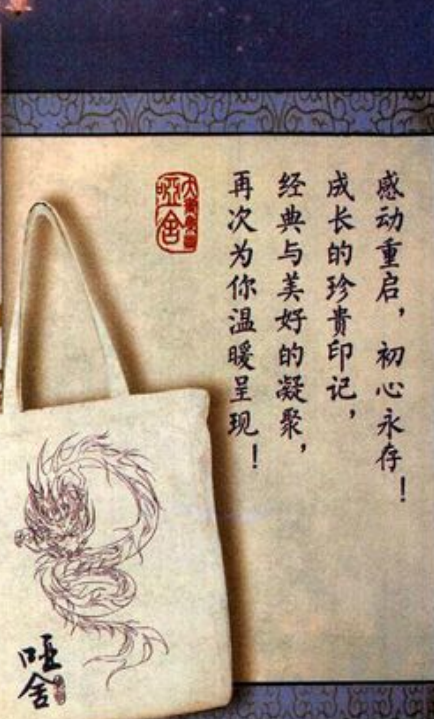 感动重启，初心永存！
成长的珍贵印记，
经典与美好的凝聚，
再次为你温暖呈现！
哑舍
哑舍